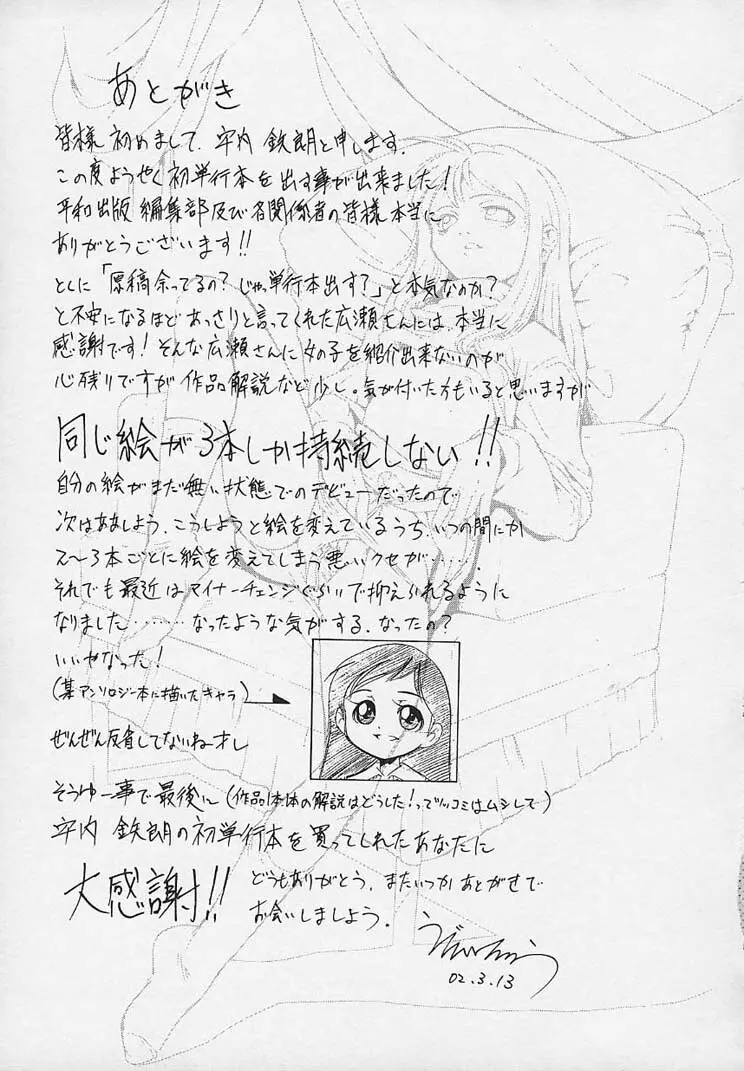 あとがき
皆様 初めまして、宇内 鉄朗と申します。
この度ようやく初単行本を出す事が出来ました!
平和出版 編集部及び各関係者の皆様本当に
ありがとうございます!!
とくに「原稿余ってるの? じゃっ単行本出す?」と本気なのか?
と不安になるほどあっさりと言ってくれた広瀬さんには、本当に
感謝です! そんな広瀬さんに女の子を紹介出来ないのが
心残りですが 作品解説など少し。気が付いた方もいると思いますが
同じ絵が3本しか持続しない!!
自分の絵がまだ無い状態でのデビューだったので…
次はああしよう、こうしようと絵を変えているうち、いつの間にか
2〜3本ごとに絵を変えてしまう悪いクセが……。
それでも最近はマイナーチェンジぐらいで抑えられるように
なりました………なったような気がする、なったの?
いいやなった!
(某アンソロジー本に描いたキャラ)
ぜんぜん反省してないねオレ
そうゆー事で最後に(作品本体の解説はどうした!ってツッコミはムシして)
宇内 鉄朗の初単行本を買ってくれたあなたに
大感謝!!
どうもありがとう、またいつかあとがきで
お会いしましょう。
02.3.13